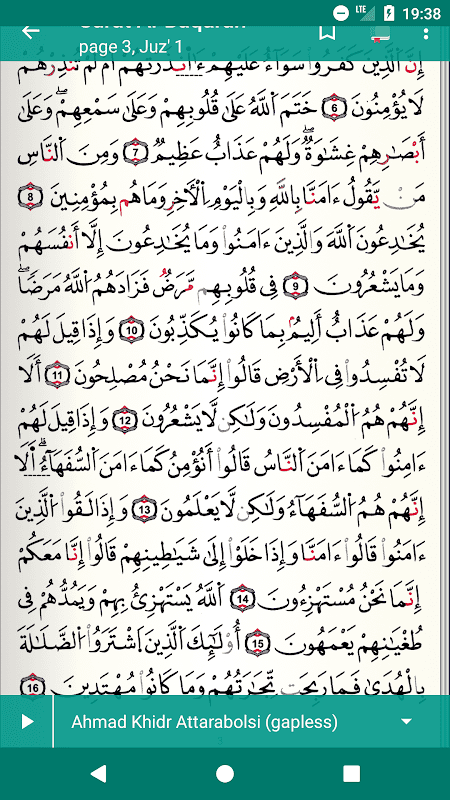 19:38
LTE
Surat Al-Baqarah
page 3, Juz' 1
إِنَّ ٱلَّذِينَ كَفَرُوا۟ سَوَآءٌ عَلَيْهِمْ ءَأَنذَرْتَهُمْ أَمْ لَمْ تُنذِرْهُمْ
لَا يُؤْمِنُونَ 6 خَتَمَ ٱللَّهُ عَلَىٰ قُلُوبِهِمْ وَعَلَىٰ سَمْعِهِمْ ۖ وَعَلَىٰٓ
أَبْصَٰرِهِمْ غِشَٰوَةٌ ۖ وَلَهُمْ عَذَابٌ عَظِيمٌ 7 وَمِنَ ٱلنَّاسِ
مَن يَقُولُ ءَامَنَّا بِٱللَّهِ وَبِٱلْيَوْمِ ٱلْءَاخِرِ وَمَا هُم بِمُؤْمِنِينَ 8
يُخَٰدِعُونَ ٱللَّهَ وَٱلَّذِينَ ءَامَنُوا۟ وَمَا يَخْدَعُونَ إِلَّآ أَنفُسَهُمْ
وَمَا يَشْعُرُونَ 9 فِى قُلُوبِهِم مَّرَضٌ فَزَادَهُمُ ٱللَّهُ مَرَضًا ۖ
وَلَهُمْ عَذَابٌ أَلِيمٌۢ بِمَا كَانُوا۟ يَكْذِبُونَ 10 وَإِذَا قِيلَ لَهُمْ
لَا تُفْسِدُوا۟ فِى ٱلْأَرْضِ قَالُوٓا۟ إِنَّمَا نَحْنُ مُصْلِحُونَ 11 أَلَآ
إِنَّهُمْ هُمُ ٱلْمُفْسِدُونَ وَلَٰكِن لَّا يَشْعُرُونَ 12 وَإِذَا قِيلَ لَهُمْ
ءَامِنُوا۟ كَمَآ ءَامَنَ ٱلنَّاسُ قَالُوٓا۟ أَنُؤْمِنُ كَمَآ ءَامَنَ ٱلسُّفَهَآءُ ۗ أَلَآ
إِنَّهُمْ هُمُ ٱلسُّفَهَآءُ وَلَٰكِن لَّا يَعْلَمُونَ 13 وَإِذَا لَقُوا۟ ٱلَّذِينَ
ءَامَنُوا۟ قَالُوٓا۟ ءَامَنَّا وَإِذَا خَلَوْا۟ إِلَىٰ شَيَٰطِينِهِمْ قَالُوٓا۟ إِنَّا مَعَكُمْ
إِنَّمَا نَحْنُ مُسْتَهْزِءُونَ 14 ٱللَّهُ يَسْتَهْزِئُ بِهِمْ وَيَمُدُّهُمْ فِى
طُغْيَٰنِهِمْ يَعْمَهُونَ 15 أُو۟لَٰٓئِكَ ٱلَّذِينَ ٱشْتَرَوُا۟ ٱلضَّلَٰلَةَ
بِٱلْهُدَىٰ فَمَا رَبِحَت تِّجَٰرَتُهُمْ وَمَا كَانُوا۟ مُهْتَدِينَ 16
Ahmad Khidr Attarabolsi (gapless)